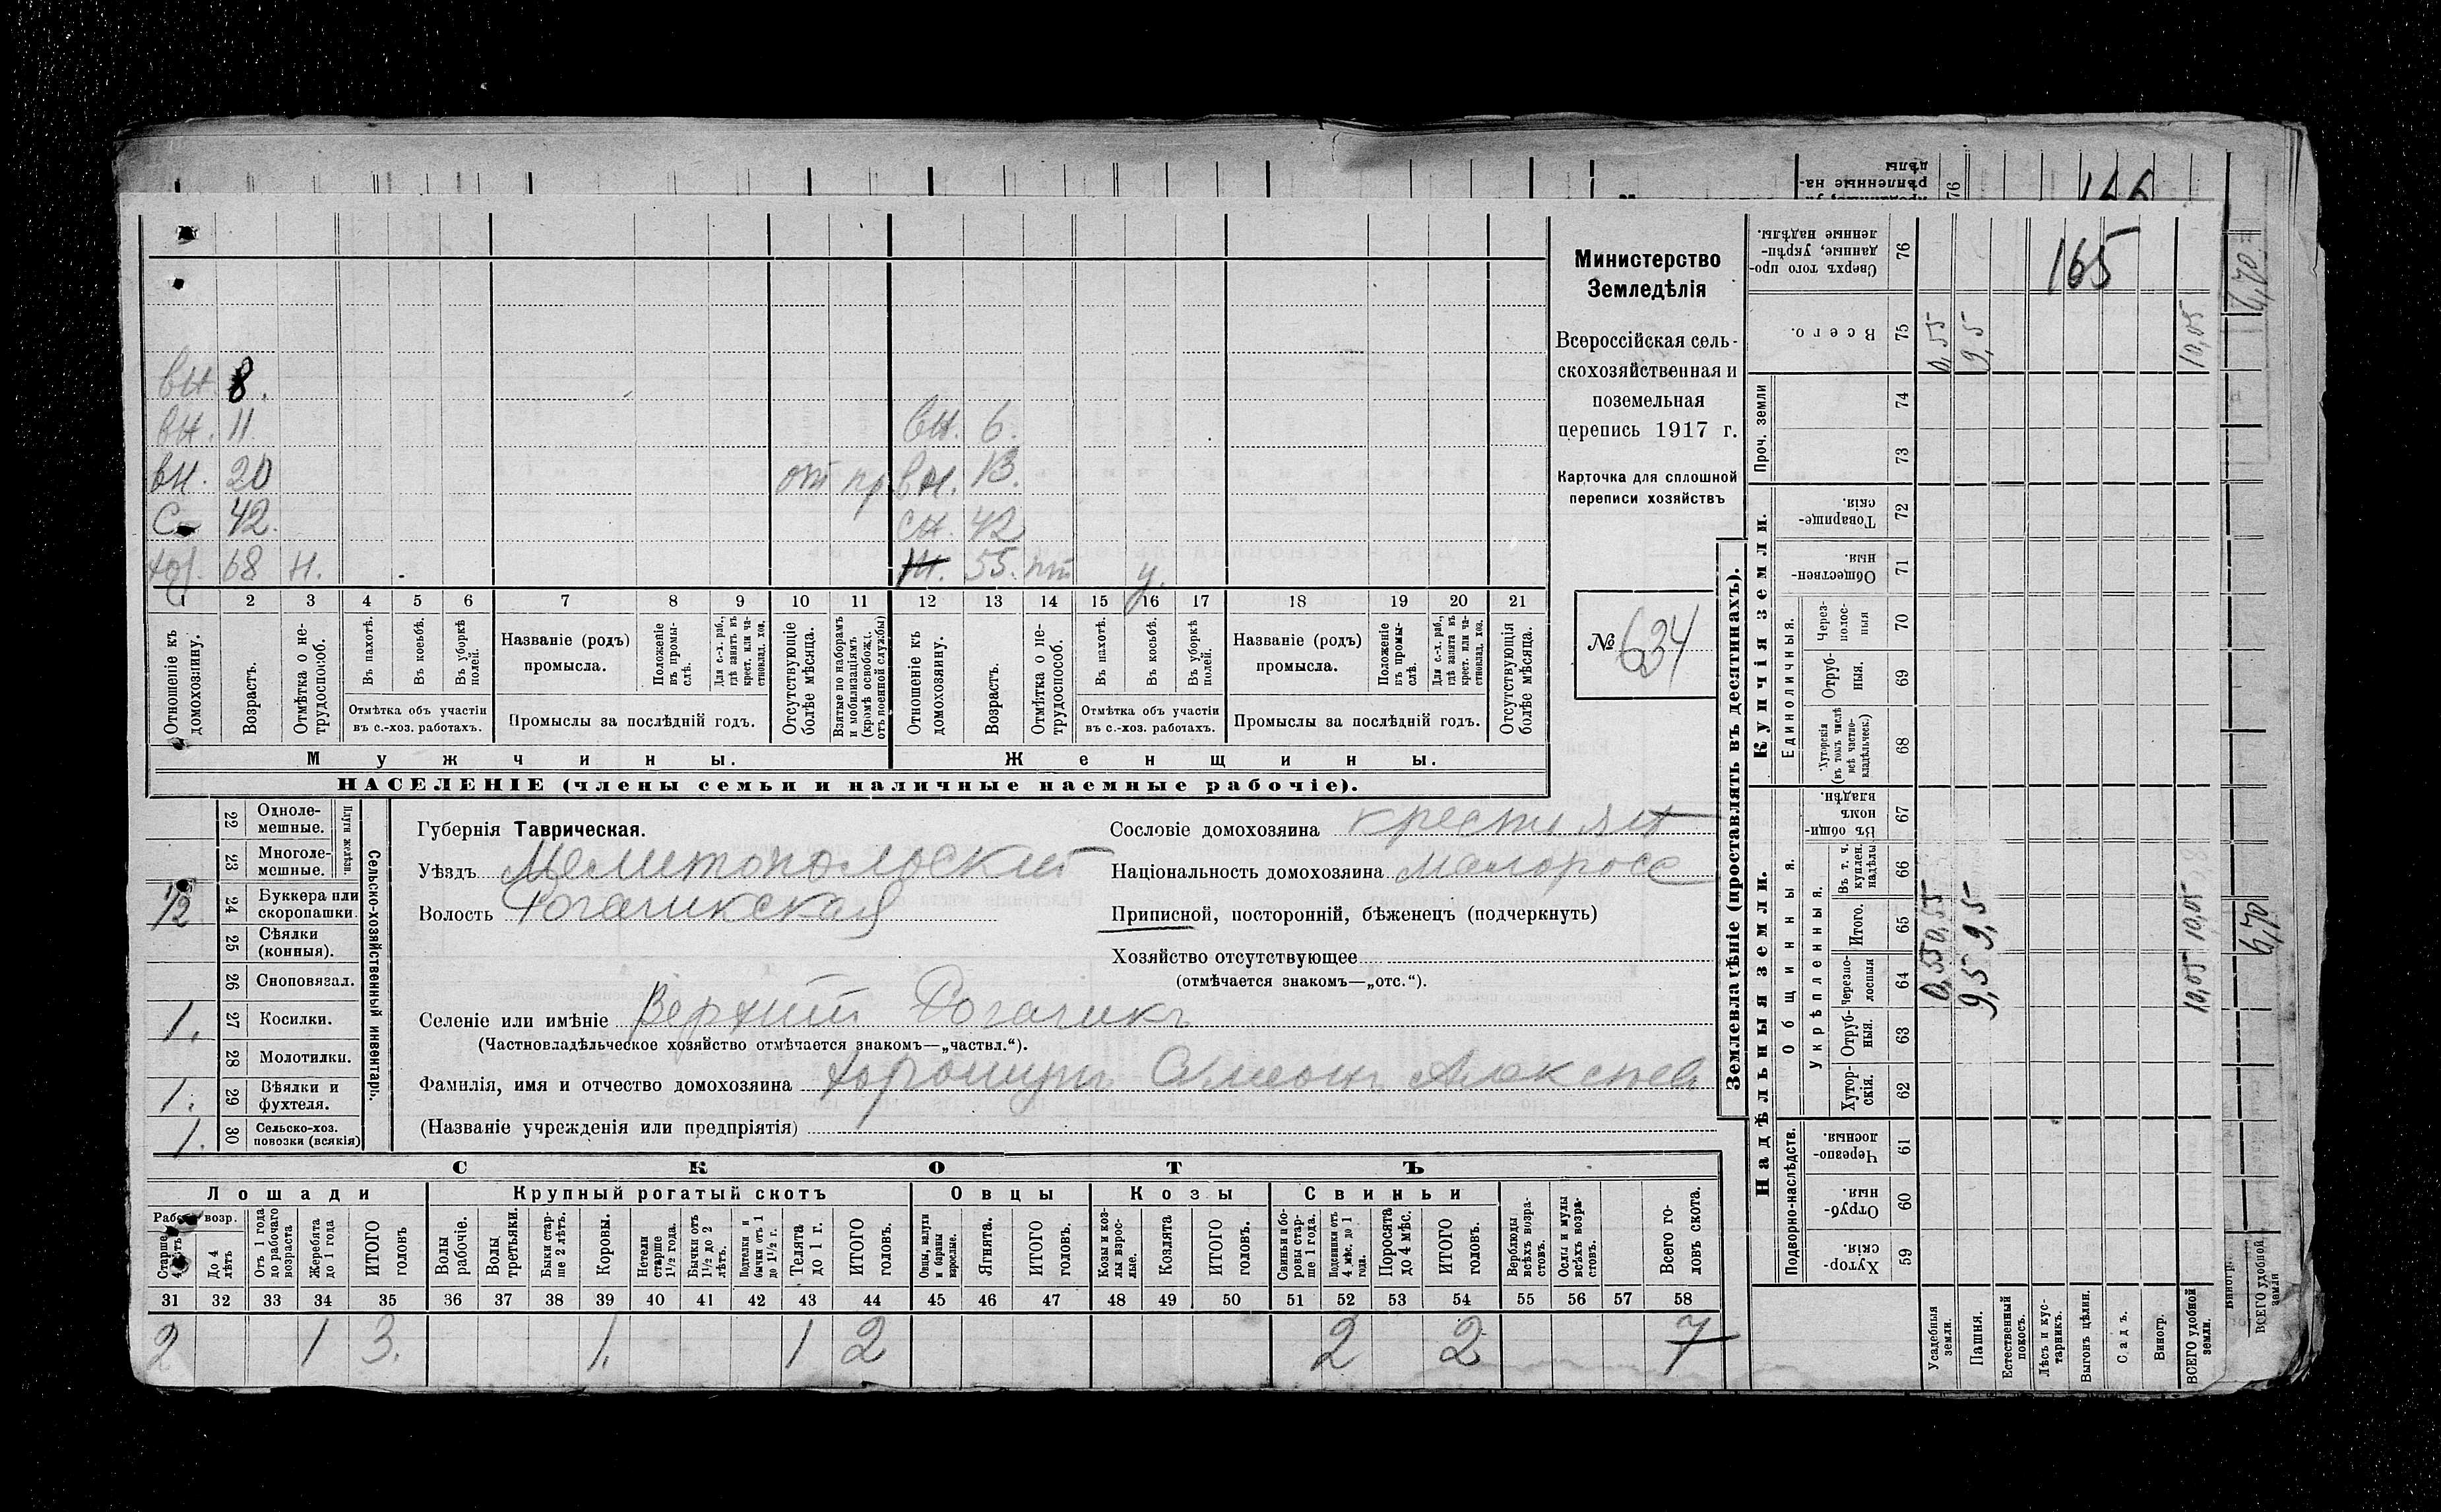 вн. 8.
вн. 11 вн. 6.
вн. 20 от пр. вн. 13.
с 42. сн. 42
хоз. 68 н. ж. 55. пт у.
1 2 3 4 5 6 7 8 9 10 11 12 13 14 15 16 17 18 19 20 21
Отношеніе къ домохозяину.
Возрастъ.
Отмѣтка о не-трудоспособ.
Въ пахотѣ.
Въ косьбѣ.
Въ уборкѣ полей.
Отмѣтка объ участіи
въ с.-хоз. работахъ.
Названіе (родъ)
промысла.
Положеніе въ промы-слѣ.
Для с.-х. раб., гдѣ занятъ въ крест. или ча-стновлад. хоз.
Промыслы за послѣдній годъ.
Отсутствующіе болѣе мѣсяца.
Взятые по наборамъ и мобилизаціямъ (кромѣ освобожд. отъ военной службы)
Отношеніе къ домохозяину.
Возрастъ.
Отмѣтка о не-трудоспособ.
Въ пахотѣ.
Въ косьбѣ.
Въ уборкѣ полей.
Отмѣтка объ участіи
въ с.-хоз. работахъ.
Названіе (родъ)
промысла.
Положеніе въ промы-слѣ.
Для с.-х. раб., гдѣ занята въ крест. или ча-стновлад. хоз.
Промыслы за послѣдній годъ.
Отсутствующія болѣе мѣсяца.
Мужчины. Женщины.
НАСЕЛЕНІЕ (члены семьи и наличные наемные рабочіе).
Министерство
Земледѣлія
Всероссійская сель-
скохозяйственная и
поземельная
перепись 1917 г.
Карточка для сплошной
переписи хозяйствъ
№ 634
Сельско-хозяйственный инвентарь.
Плуги желѣзн.
22 Одноле-мешные.
23 Многоле-мешные.
1/2 24 Буккера или скоропашки.
25 Сѣялки (конныя).
26 Сноповязал.
1. 27 Косилки.
28 Молотилки.
1. 29 Вѣялки и фухтеля.
1. 30 Сельско-хоз. повозки (всякія)
Губернія Таврическая.
Уѣздъ Мелитопольскій
Волость Рогачикская
Сословіе домохозяина крестьян
Національность домохозяина малоросс
Приписной, посторонній, бѣженецъ (подчеркнуть)
Хозяйство отсутствующее
(отмѣчается знакомъ—„отс.“).
Селеніе или имѣніе Верхній Рогачикъ
(Частновладѣльческое хозяйство отмѣчается знакомъ—„частвл.“).
Фамилія, имя и отчество домохозяина Хорошунъ Симеонъ Алексѣев
(Названіе учрежденія или предпріятія)
СКОТЪ
Лошади Крупный рогатый скотъ Овцы Козы Свиньи
Рабоч. возр.
Старше 4 лѣтъ
До 4 лѣтъ
Отъ 1 года до рабочаго возраста
Жеребята до 1 года
ИТОГО головъ
Волы рабочіе.
Волы третьяки.
Быки стар-ше 2 лѣтъ.
Коровы.
Нетели старше 1½ года.
Бычки отъ 1½ до 2 лѣтъ.
Подтелки и бычки отъ 1 до 1½ г.
Телята до 1 г.
ИТОГО головъ.
Овцы, валухи и бараны взрослые.
Ягнята.
ИТОГО головъ.
Козы и коз-лы взрос-лые.
Козлята
ИТОГО головъ.
Свиньи и бо-ровы стар-ше 1 года.
Подсвинки отъ 4 мѣс. до 1 года.
Поросята до 4 мѣс.
ИТОГО головъ.
Верблюды всѣхъ возра-стовъ.
Ослы и мулы всѣхъ возра-стовъ.
Всего го-ловъ скота.
31 32 33 34 35 36 37 38 39 40 41 42 43 44 45 46 47 48 49 50 51 52 53 54 55 56 57 58
2 1 3. 1. 1 2 2 2 7
Землевладѣніе (проставлять въ десятинахъ).
Купчія земли.
Надѣльныя земли.
Сверхъ того про-данные, укрѣп-ленные надѣлы. 76
165
Всего. 75 0,55 9,5 10,05
Проч. земли 74
73
Товарище-скія. 72
Обществен-ныя. 71
Единоличныя.
Через-полос-ныя 70
Отруб-ныя. 69
Хуторскія (въ томъ числѣ всѣ частно-владѣльческ.) 68
Общинныя.
Въ общин-номъ владѣн. 67
Укрѣпленныя.
Въ т. ч. куплен. надѣлы 66
Итого. 65 0,55 9,5 10,05
Черезпо-лосныя 64 0,55 9,5 10,05
Отруб-ныя. 63
Хутор-скія. 62
Подворно-наслѣдств.
Черезпо-лосныя. 61
Отруб-ныя. 60
Хутор-скія. 59
Усадебныя земли.
Пашня.
Естественный покосъ.
Лѣсъ и кус-тарникъ.
Выгонъ цѣлин.
Садъ.
Виногр.
ВСЕГО удобной земли.
76
6,70
6,70
Виногр.
ВСЕГО удобной земли